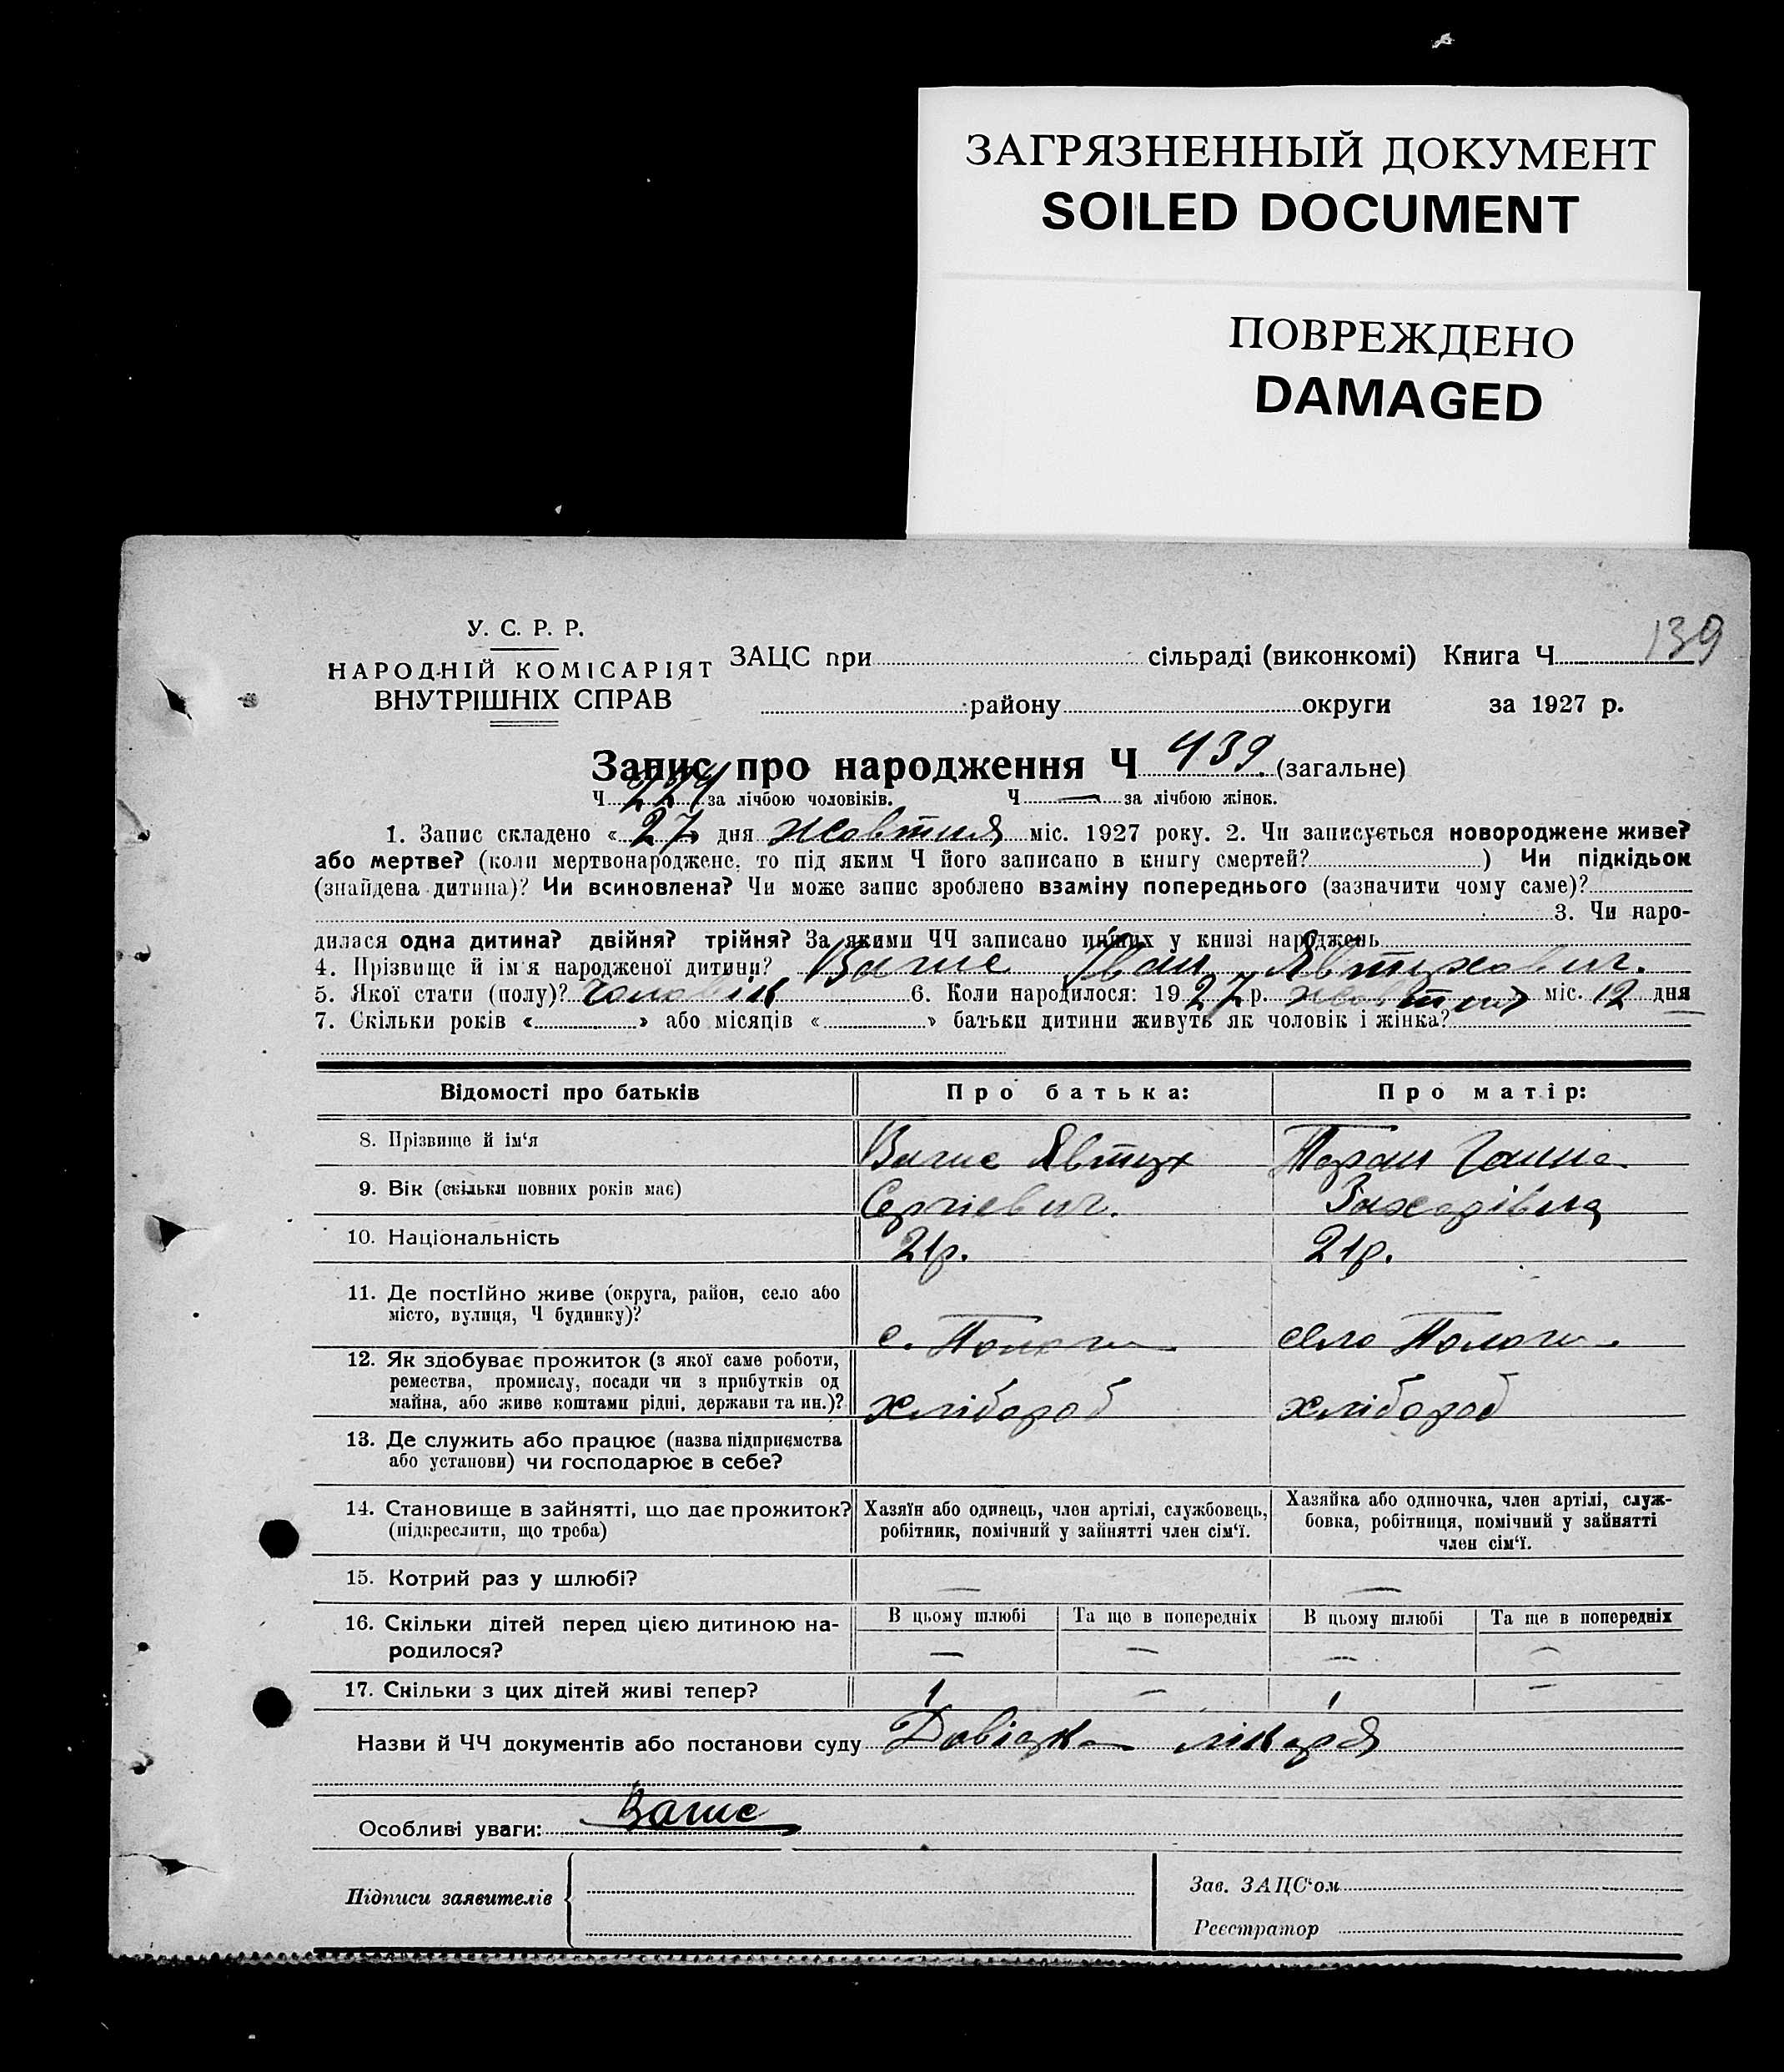 ЗАГРЯЗНЕННЫЙ ДОКУМЕНТ
SOILED DOCUMENT
ПОВРЕЖДЕНО
DAMAGED
139
У. С. Р. Р.
НАРОДНІЙ КОМІСАРІЯТ
ВНУТРІШНІХ СПРАВ
ЗАЦС при сільраді (виконкомі) Книга Ч
району округи за 1927 р.
Запис про народження Ч 439 (загальне)
Ч 224 за лічбою чоловіків. Ч — за лічбою жінок.
1. Запис складено « 27 » дня жовтня міс. 1927 року. 2. Чи записується новороджене живе?
або мертве? (коли мертвонароджене, то під яким Ч його записано в книгу смертей? ) Чи підкідьок
(знайдена дитина)? Чи всиновлена? Чи може запис зроблено взаміну попереднього (зазначити чому саме)?
3. Чи наро-
дилася одна дитина? двійня? трійня? За якими ЧЧ записано инших у книзі народжень
4. Прізвище й ім'я народженої дитини? Іван Явтухович.
5. Якої стати (полу)? Чоловік 6. Коли народилося: 1927 р. жовтня міс. 12 дня
7. Скільки років « » або місяців « » батьки дитини живуть як чоловік і жінка?
Відомості про батьків Про батька: Про матір:
8. Прізвище й ім‘я Явтух Таран Ганна
9. Вік (скільки повних років має) Сергієвич. Захарівна
10. Національність 21р. 21р.
11. Де постійно живе (округа, район, село або
місто, вулиця, Ч будинку)?
с. Пологи село Пологи
12. Як здобуває прожиток (з якої саме роботи,
ремества, промислу, посади чи з прибутків од
майна, або живе коштами рідні, держави та ин.)? хлібороб хлібороб
13. Де служить або працює (назва підприємства
або установи) чи господарює в себе?
14. Становище в зайнятті, що дає прожиток?
(підкреслити, що треба)
Хазяїн або одинець, член артілі, службовець,
робітник, помічний у зайнятті член сім‘ї.
Хазяйка або одиночка, член артілі, служ-
бовка, робітниця, помічний у зайнятті
член сім‘ї.
15. Котрий раз у шлюбі? — —
16. Скільки дітей перед цією дитиною на-
родилося?
В цьому шлюбі Та ще в попередніх В цьому шлюбі Та ще в попередніх
— — — —
17. Скільки з цих дітей живі тепер? 1 — 1 —
Назви й ЧЧ документів або постанови суду Довідка лікаря
Особливі уваги:
Підписи заявителів
Зав. ЗАЦС‘ом
Реєстратор